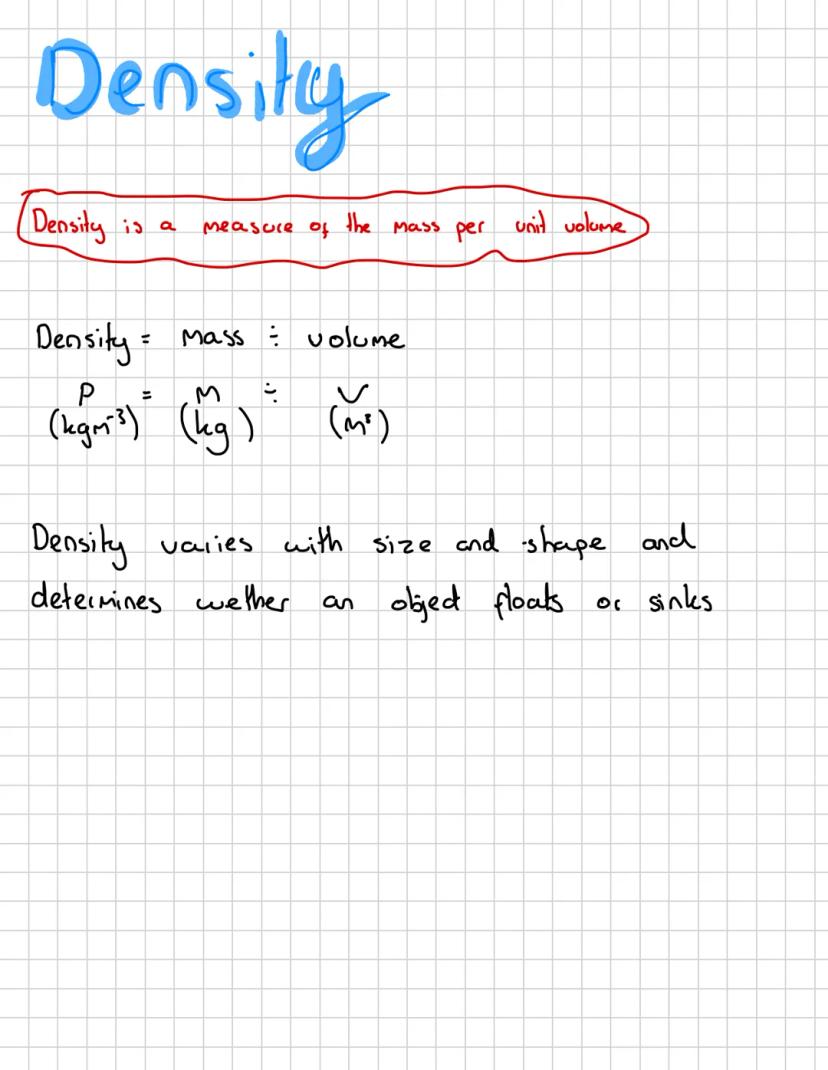 Density
Density is a measure of the mass per unit volume
Density = mass ÷ volume
ρ = m ÷ v
(kgm⁻³) (kg) (m³)
Density varies with size and shape and
determines wether an object floats or sinks